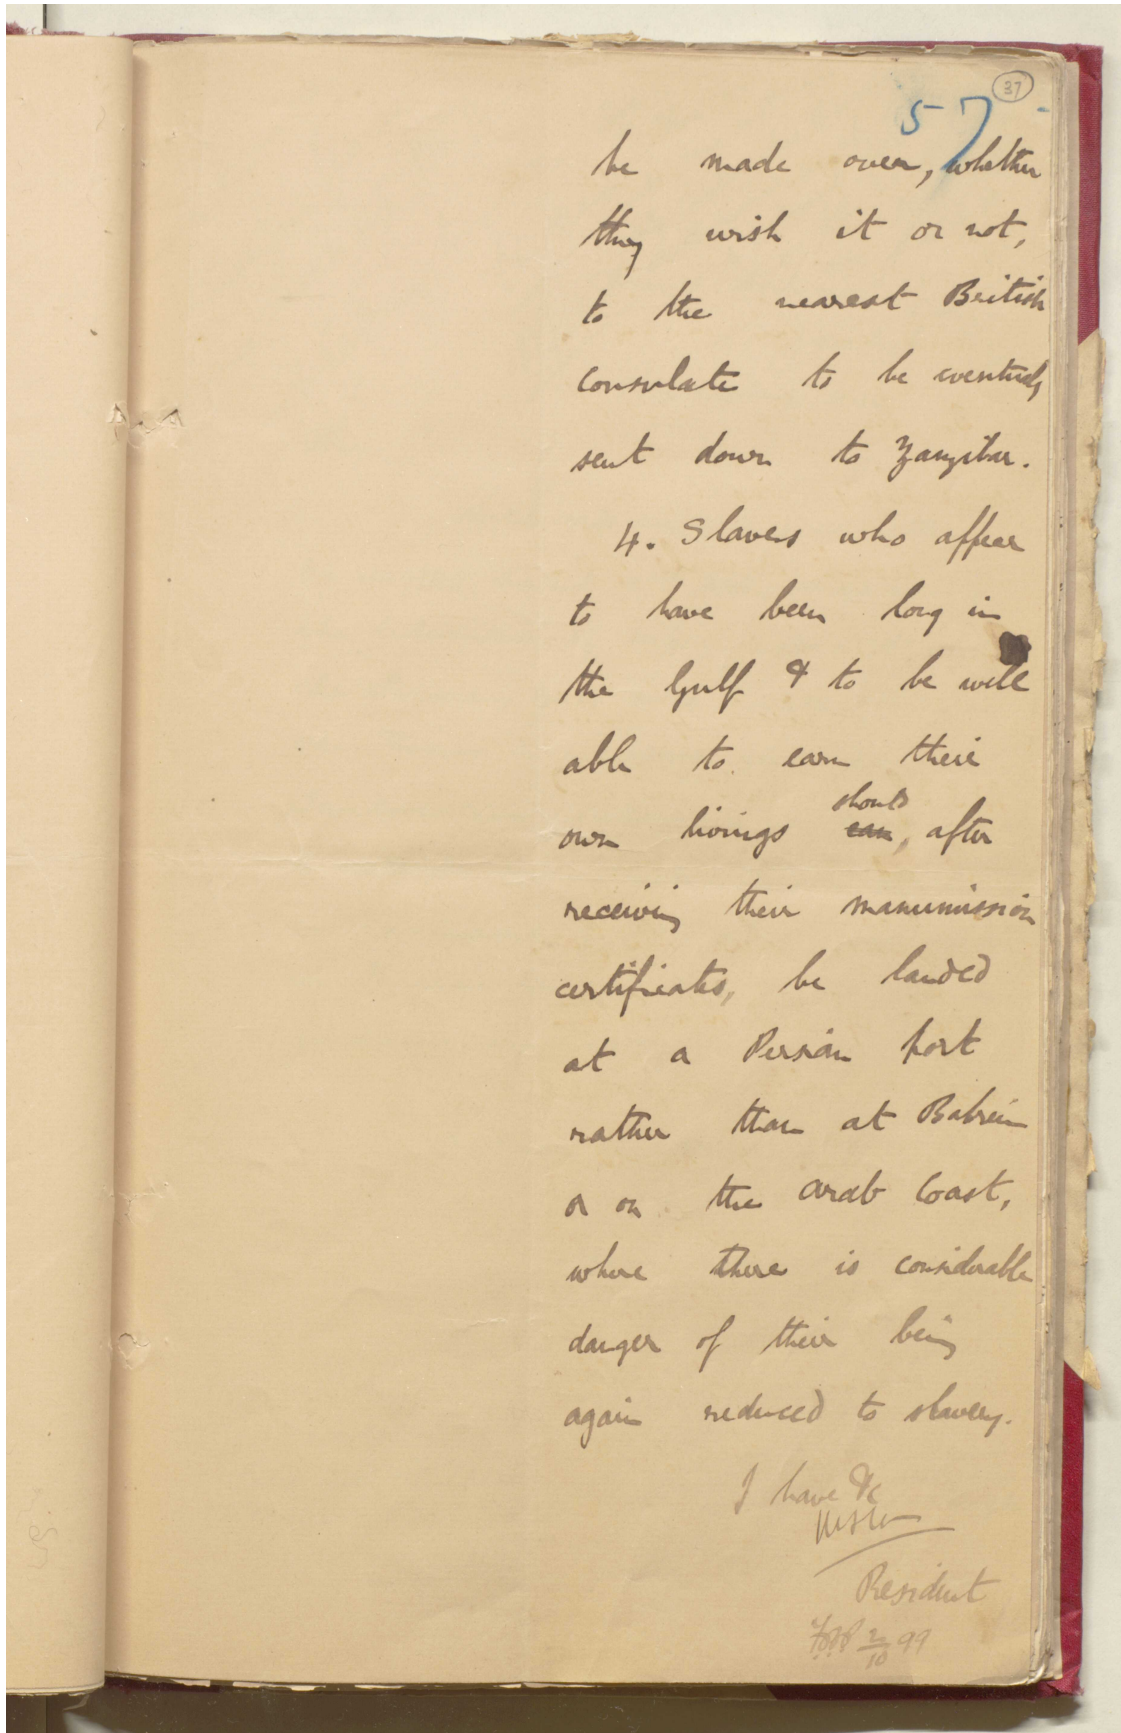 37
57
be made over, whether
they wish it or not,
to the nearest British
consulate to be eventually
sent down to Zanzibar.
4. Slaves who appear
to have been long in
the Gulf & to be well
able to earn their
should
own livings can, after
receiving their manumission
certificates, be landed
at a Persian port
rather than at Bahrein
or on the Arab Coast,
where there is considerable
danger of their being
again reduced to slavery.
I have &c
Resident
2/10 99